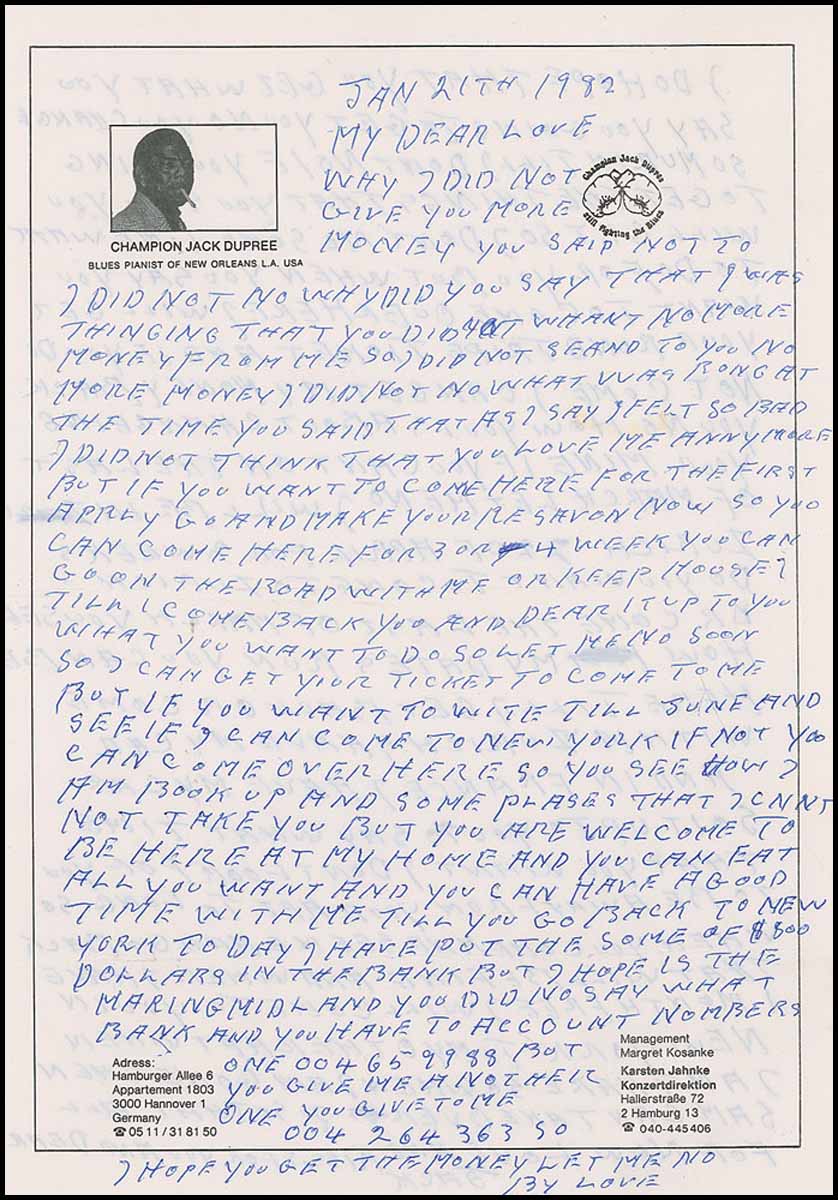 JAN 21TH 1982
MY DEAR LOVE
WHY I DID NOT
GIVE YOU MORE
MONEY YOU SAID NOT TO
Champion Jack Dupree
Still fighting the Blues
CHAMPION JACK DUPREE
BLUES PIANIST OF NEW ORLEANS L.A. USA
I DID NOT NO WHY DID YOU SAY THAT I WAS
THINGING THAT YOU DID NOT WHANT NO MORE
MONEY FROM ME SO I DID NOT SEAND TO YOU NO
MORE MONEY I DID NOT NO WHAT WAS RONG AT
THE TIME YOU SAID THAT AS I SAY I FELT SO BAD
I DID NOT THINK THAT YOU LOVE ME ANNY MORE
BUT IF YOU WANT TO COME HERE FOR THE FIRST
APRLY GO AND MAKE YOUR RESAVON NOW SO YOU
CAN COME HERE FOR 3 OR 4 WEEK YOU CAN
GO ON THE ROAD WITH ME OR KEEP HOUSE
TILL I COME BACK YOU AND DEAR IT UP TO YOU
WHAT YOU WANT TO DO SO LET ME NO SOON
SO I CAN GET YOUR TICKET TO COME TO ME
BUT IF YOU WANT TO WITE TILL JUNE AND
SEE IF I CAN COME TO NEW YORK IF NOT YOU
CAN COME OVER HERE SO YOU SEE HOW I
AM BOOK UP AND SOME PLASES THAT I CNNT
NOT TAKE YOU BUT YOU ARE WELCOME TO
BE HERE AT MY HOME AND YOU CAN EAT
ALL YOU WANT AND YOU CAN HAVE A GOOD
TIME WITH ME TILL YOU GO BACK TO NEW
YORK TO DAY I HAVE PUT THE SOME OF $800
DOLLARS IN THE BANK BUT I HOPE IS THE
MARING MIDLAND YOU DID NO SAY WHAT
BANK AND YOU HAVE TO ACCOUNT NOMBERS
ONE 004 65 9988 BUT
YOU GIVE ME A NOTHER
ONE YOU GIVE TO ME
004 264 363 SO
Adress:
Hamburger Allee 6
Appartement 1803
3000 Hannover 1
Germany
☎ 05 11 / 31 81 50
Management
Margret Kosanke
Karsten Jahnke
Konzertdirektion
Hallerstraße 72
2 Hamburg 13
☎ 040-445406
I HOPE YOU GET THE MONEY LET ME NO
BY LOVE